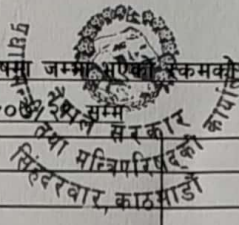 षमा जम्मा भएको रकमको
सम्म
नेपाल सरकार
तथा मन्त्रिपरिषद्को कार्यालय
सिंहदरवार, काठमाडौं